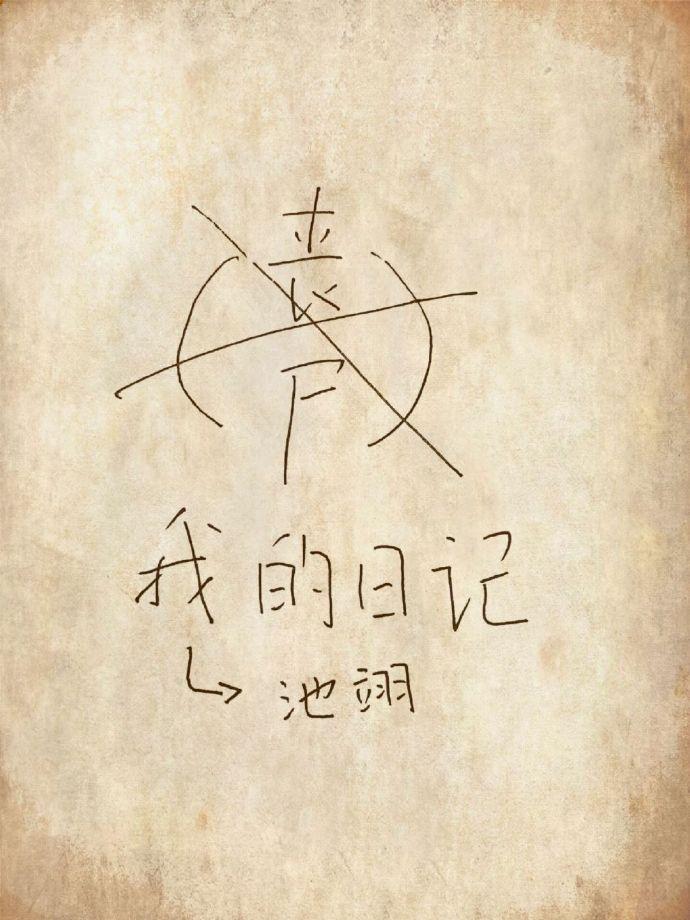 丧
尸
我的日记
池翊